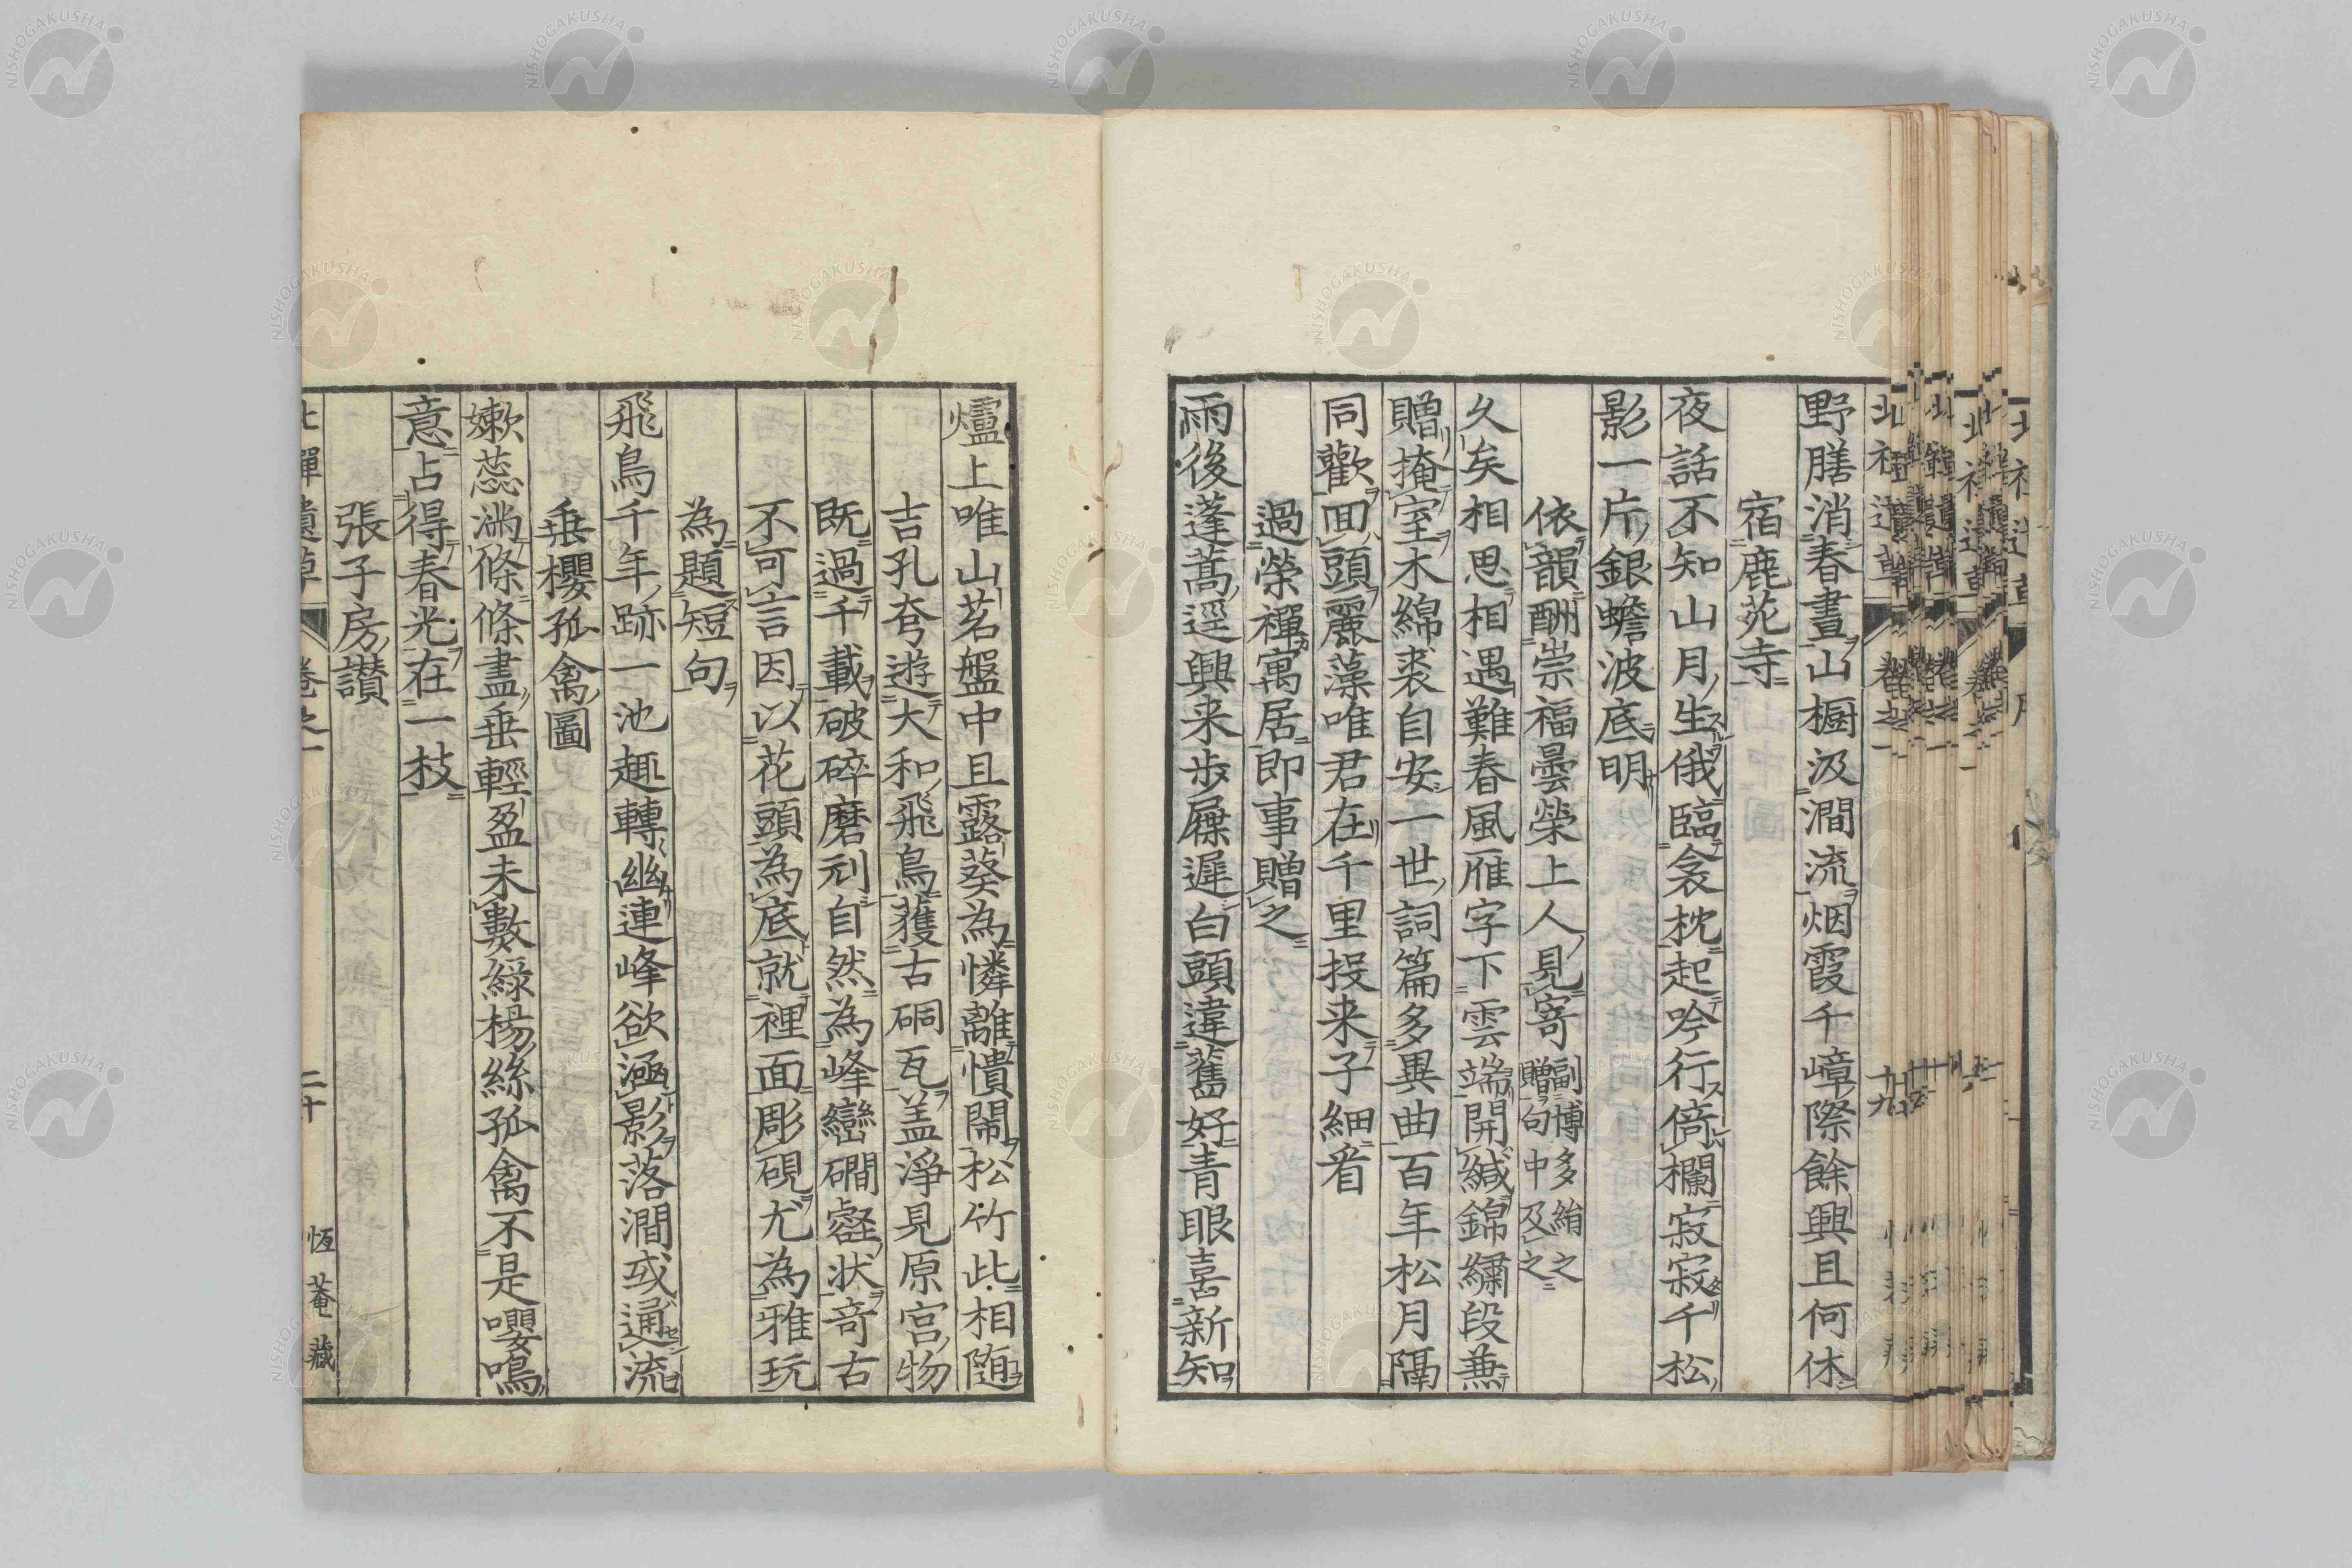 野膳消春晝山橱汲澗流烟霞千嶂際餘興且何休
宿鹿苑寺
夜話不知山月生俄臨衾枕起吟行倚欄寂寂千松
影一片銀蟾波底明
依韻酬崇福曇榮上人見寄副博多絹之贈句中及之
久矣相思相遇難春風雁字下雲端開緘錦繡段兼
贈掩室木綿裘自安一世詞篇多異曲百年松月隔
同歡回頭麗藻唯君在千里投来子細看
過榮禪寓居即事贈之
雨後蓬蒿逕興来步屧遲白頭違舊好青眼喜新知
爐上唯山茗盤中且露葵為憐離憒鬧松竹此相随
吉孔夸遊大和飛鳥獲古硐瓦盖淨見原宮物
既過千載破碎磨刓自然為峰巒磵壑状竒古
不可言因以花頭為底就裡面彫硯尤為雅玩
為題短句
飛鳥千年跡一池趣轉幽連峰欲涵影落澗或通流
垂櫻孤禽圖
嫩蕊滿條條盡垂輕盈未數綠楊絲孤禽不是嚶鳴
意占得春光在一枝
張子房讃
北禪遺草 卷之一 二十 恆菴藏